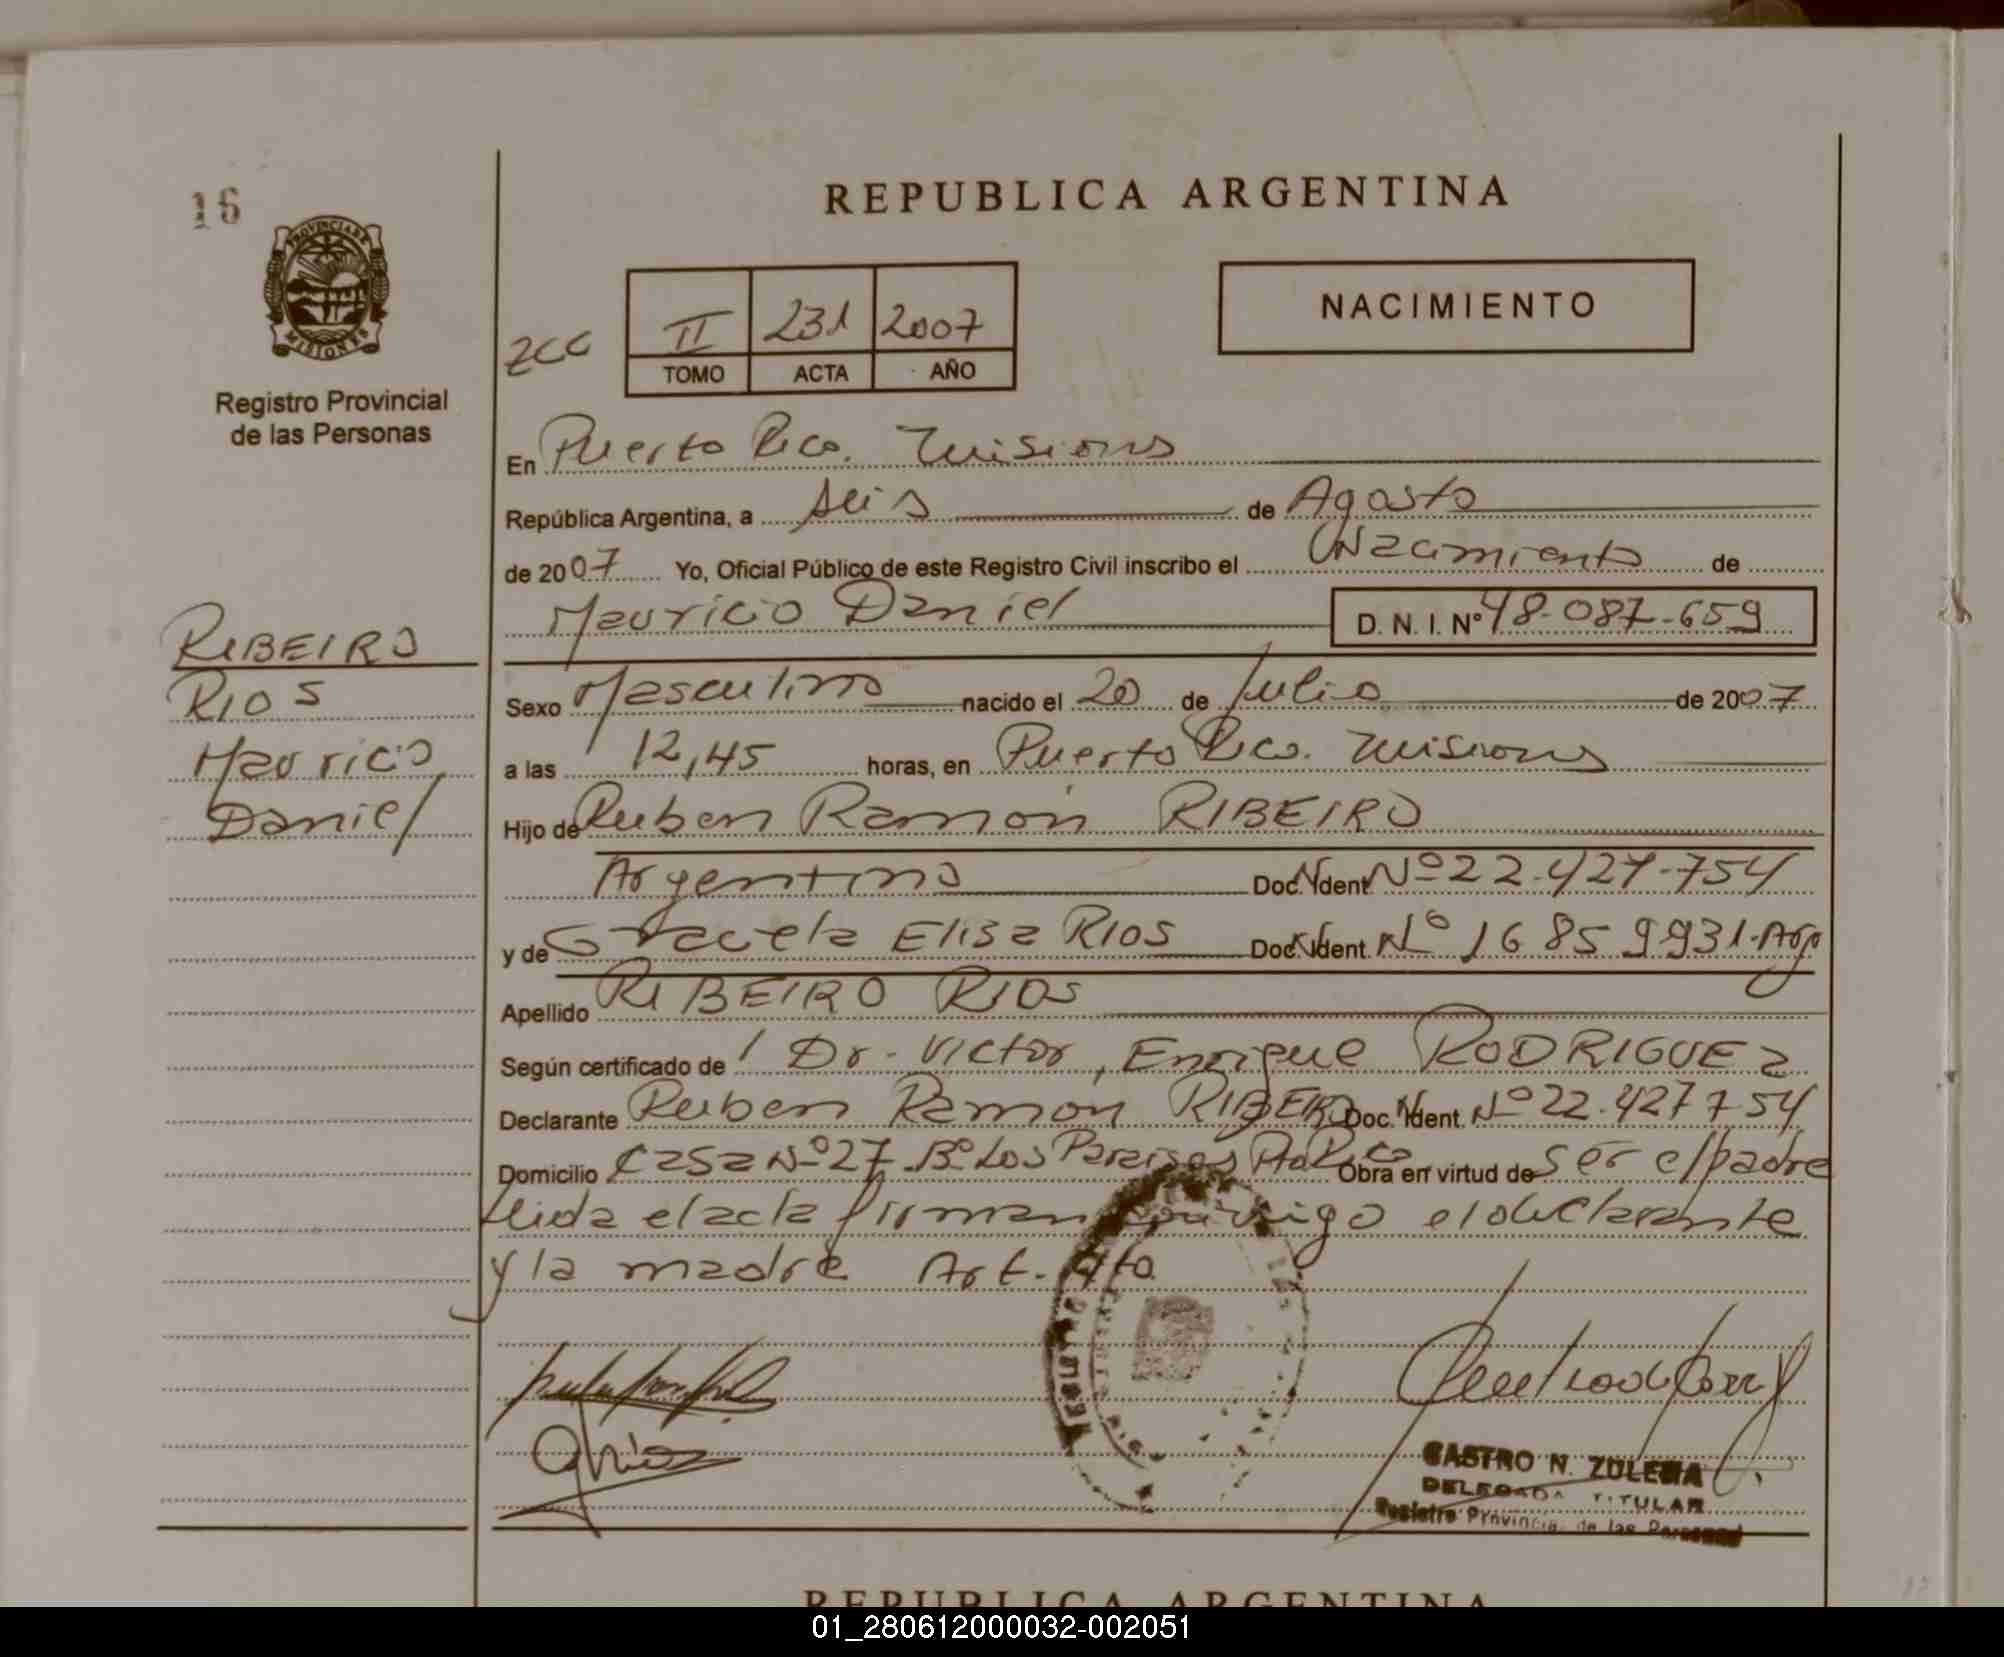 16
REPUBLICA ARGENTINA
PROVINCIA DE
MISIONES
Registro Provincial
de las Personas
II 231 2007
TOMO ACTA AÑO
NACIMIENTO
En Puerto Rico. Misiones
República Argentina, a seis de Agosto
de 2007 Yo, Oficial Público de este Registro Civil inscribo el Nacimiento de
Mauricio Daniel D. N. I. Nº 48.087.659
RIBEIRO
RIOS
Mauricio
Daniel
Sexo Masculino nacido el 20 de Julio de 2007
a las 12,45 horas, en Puerto Rico. Misiones
Hijo de Ruben Ramón RIBEIRO
Argentino Doc. Ident. Nº 22.427.754
y de Graciela Elisa RIOS Doc. Ident. Nº 16 859 931. Arg
Apellido RIBEIRO RIOS
Según certificado de Dr. Victor, Enrique RODRIGUEZ
Declarante Ruben Ramon RIBEIRO Doc. Ident. Nº 22.427 754
Domicilio Casa Nº 27 Bº Los Paraisos Pto Rico Obra en virtud de ser el padre
leida el acta firman conmigo el declarante
y la madre Art. 4to
CASTRO N. ZULEMA
DELEGADA TITULAR
Registro Provincial de las Personas
REPUBLICA ARGENTINA
01_280612000032-002051